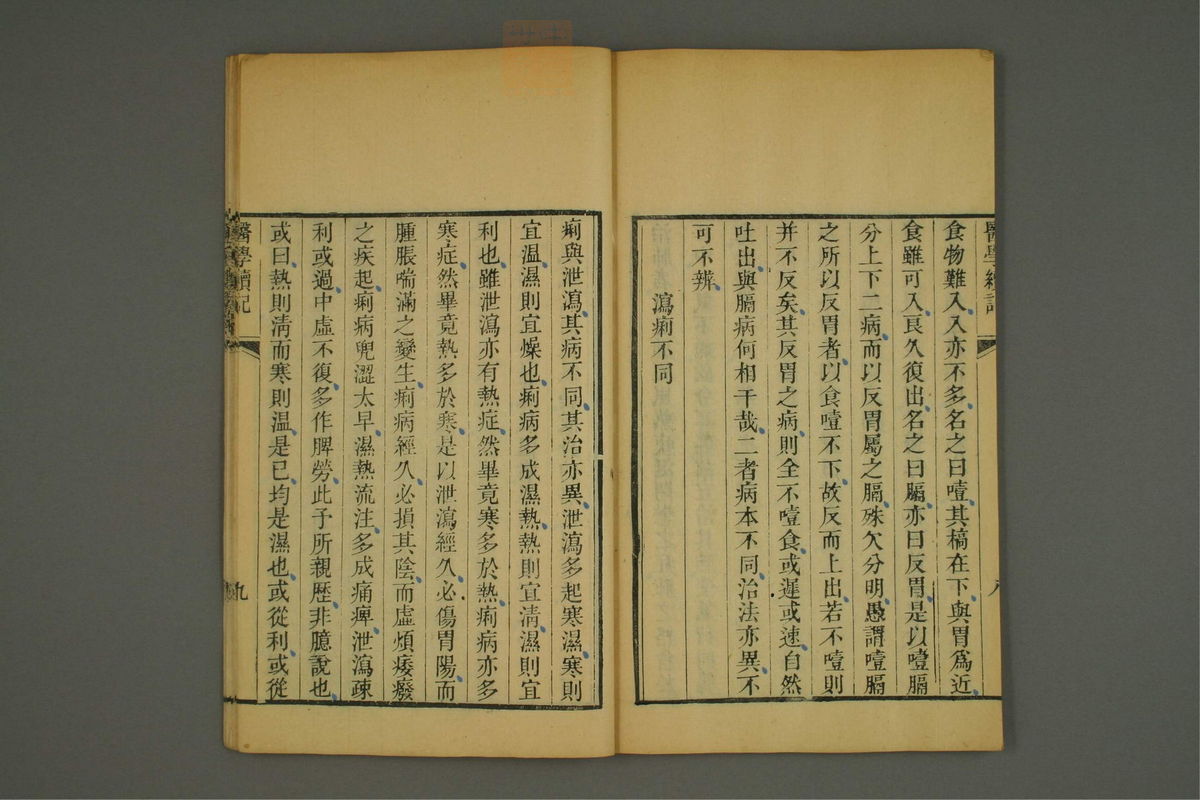 醫學
食物難入入亦不多名之曰噎其槁在下與胃爲近
食雖可入良久復出名之曰膈亦曰反胃是以噎膈
分上下二病而以反胃屬之膈殊欠分明愚謂噎膈
之所以反胃者以食噎不下故反而上出若不噎則
并不反矣其反胃之病則全不噎食或遲或速自然
吐出與膈病何相干哉二者病本不同治法亦異不
可不辨
瀉痢不同
痢與泄瀉其病不同其治亦異泄瀉多起寒濕寒則
宜溫濕則宜燥也痢病多成濕熱熱則宜淸濕則宜
利也雖泄瀉亦有熱症然畢竟寒多於熱痢病亦多
寒症然畢竟熱多於寒是以泄瀉經久必傷胃陽而
腫脹喘滿之變生痢病經久必損其陰而虛煩痿癈
之疾起痢病兜澀太早濕熱流注多成痛痺泄瀉疎
利或過中虛不復多作脾勞此予所親歷非臆說也
或曰熱則淸而寒則溫是已均是濕也或從利或從
醫學讀記
九